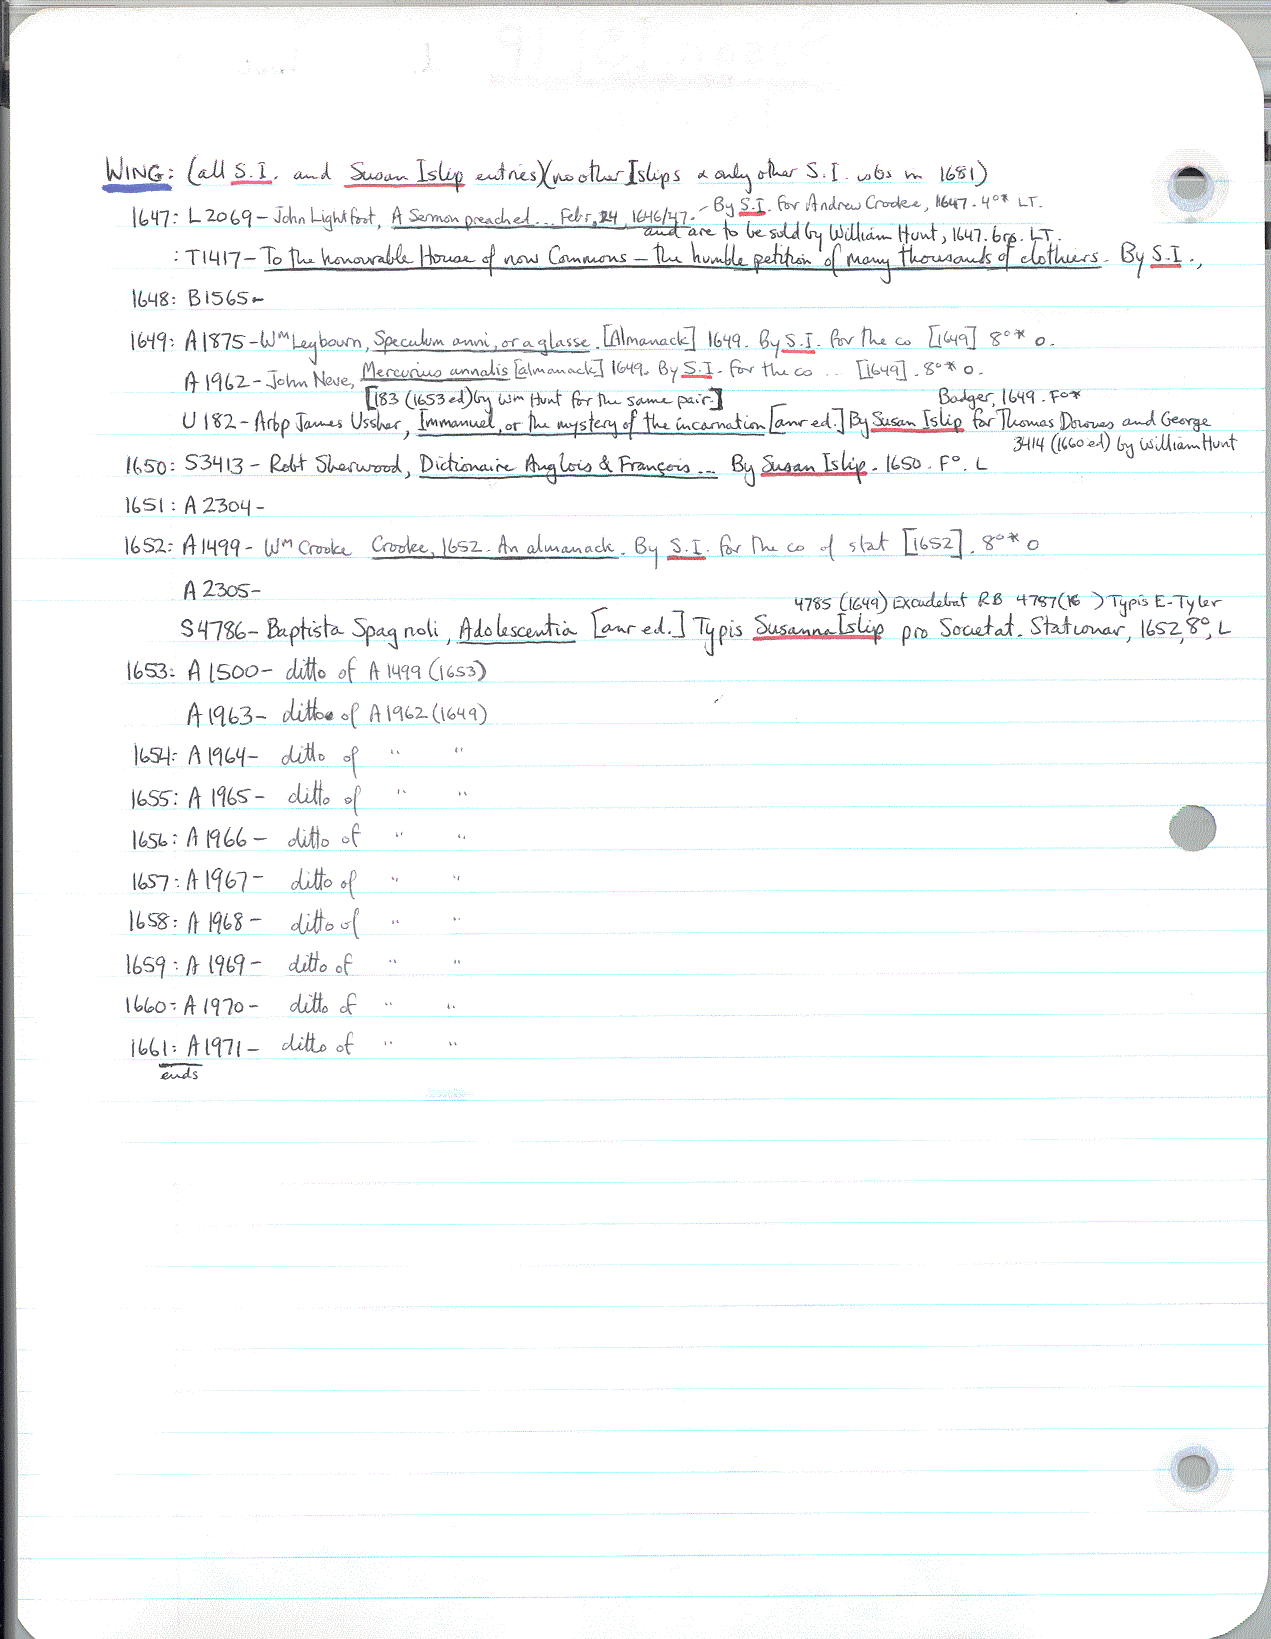 WING: (all S.I. and Susan Islip entries)(no other Islips & only other S.I. was in 1681)
1647: L2069 - John Lightfoot, A Sermon preached... Febr. 24, 1646/47. - By S.I. for Andrew Crooke, 1647. 4°* LT.
and are to be sold by William Hunt, 1647. brs. LT.
: T1417 - To the honourable House of now Commons - the humble petition of many thousands of clothiers. By S.I.,
1648: B1565 -
1649: A1875 - Wm Leybourn, Speculum anni, or a glasse. [Almanack] 1649. By S.I. for the co [1649] 8°* O.
A1962 - John Neve, Mercurius annalis [almanack] 1649. By S.I. for the co ... [1649]. 8°* O.
[183 (1653 ed) by Wm Hunt for the same pair.] Badger, 1649. F°*
U182 - Arbp James Ussher, Immanuel, or the mystery of the incarnation [anr ed.] By Susan Islip for Thomas Downes and George
3414 (1660 ed) by William Hunt
1650: S3413 - Robt Sherwood, Dictionaire Anglois & François... By Susan Islip. 1650. F°. L
1651: A2304 -
1652: A1499 - Wm Crooke Crooke, 1652. An almanack. By S.I. for the co of stat [1652]. 8°* O
A2305 -
4785 (1649) Excudebat RB 4787 (16 ) Typis E-Tyler
S4786 - Baptista Spagnoli, Adolescentia [anr ed.] Typis Susanna Islip pro Societat. Stationar, 1652, 8°, L
1653: A1500 - ditto of A1499 (1653)
A1963 - ditto of A1962 (1649)
1654: A1964 - ditto of " "
1655: A1965 - ditto of " "
1656: A1966 - ditto of " "
1657: A1967 - ditto of " "
1658: A1968 - ditto of " "
1659: A1969 - ditto of " "
1660: A1970 - ditto of " "
1661: A1971 - ditto of " "
ends